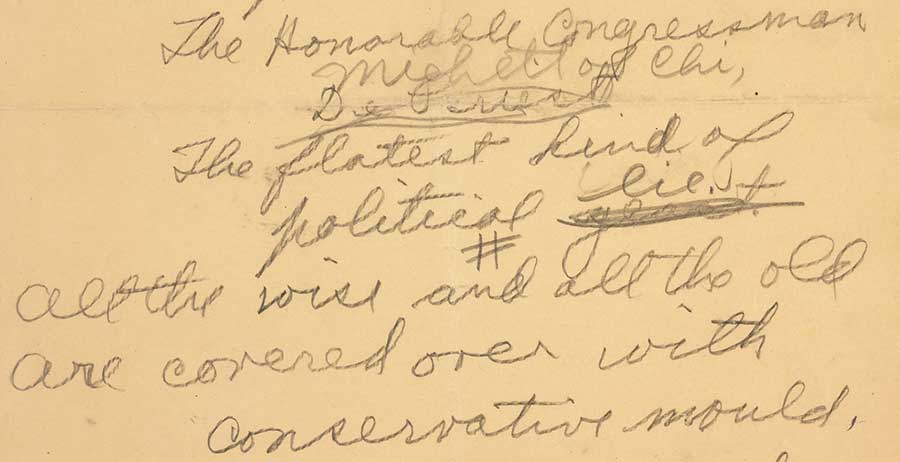 The Honorable Congressman
of Chi,
De Priest
The flatest kind of
lie.
political
#
All the wise and all the old
Are covered over with
Conservative mould.